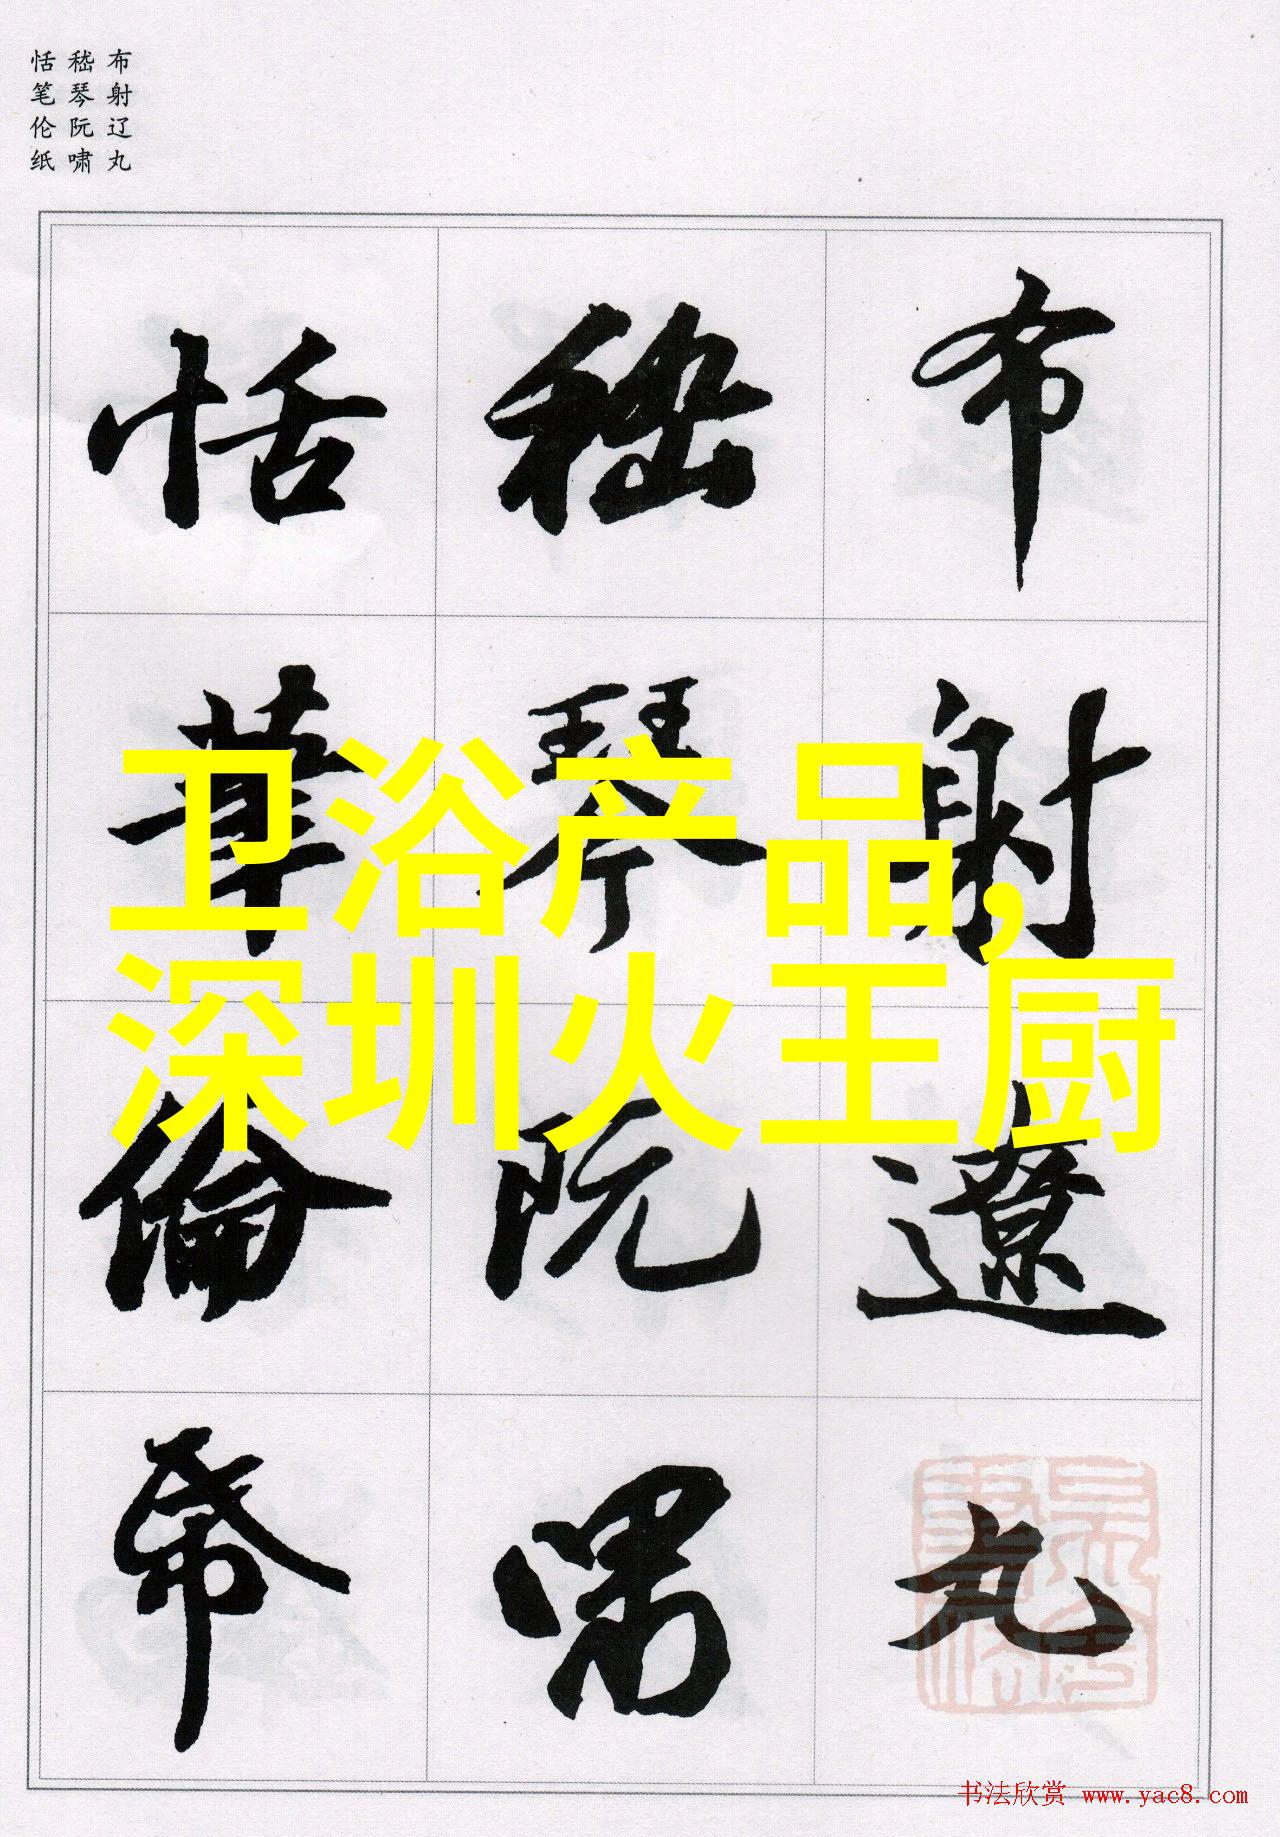 布射辽丸
嵇琴阮啸
恬笔伦纸
布射遼丸
嵇琴阮嘯
恬筆倫紙
卫浴产品,
深圳火王厨
书法欣赏 www.yac8.com